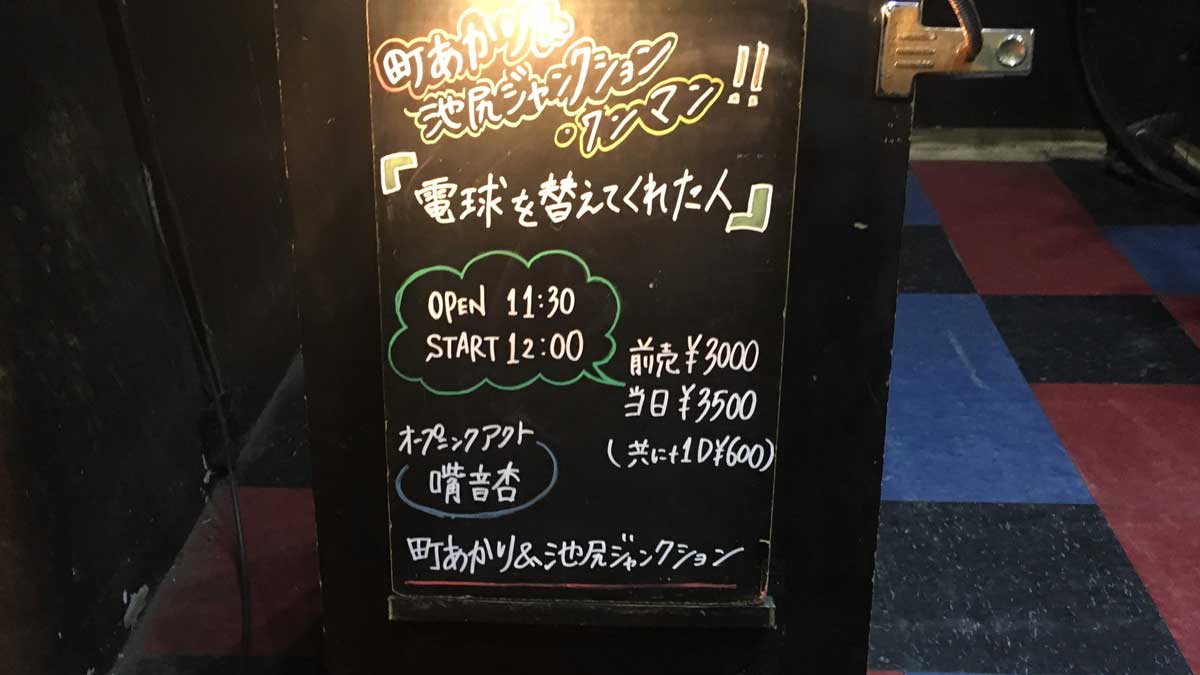 町あかり&
池尻ジャンクション
・ワンマン!!
『電球を替えてくれた人』
OPEN 11:30
START 12:00
前売¥3000
当日¥3500
(共に+1D¥600)
オープニングアクト
嘴音杏
町あかり&池尻ジャンクション